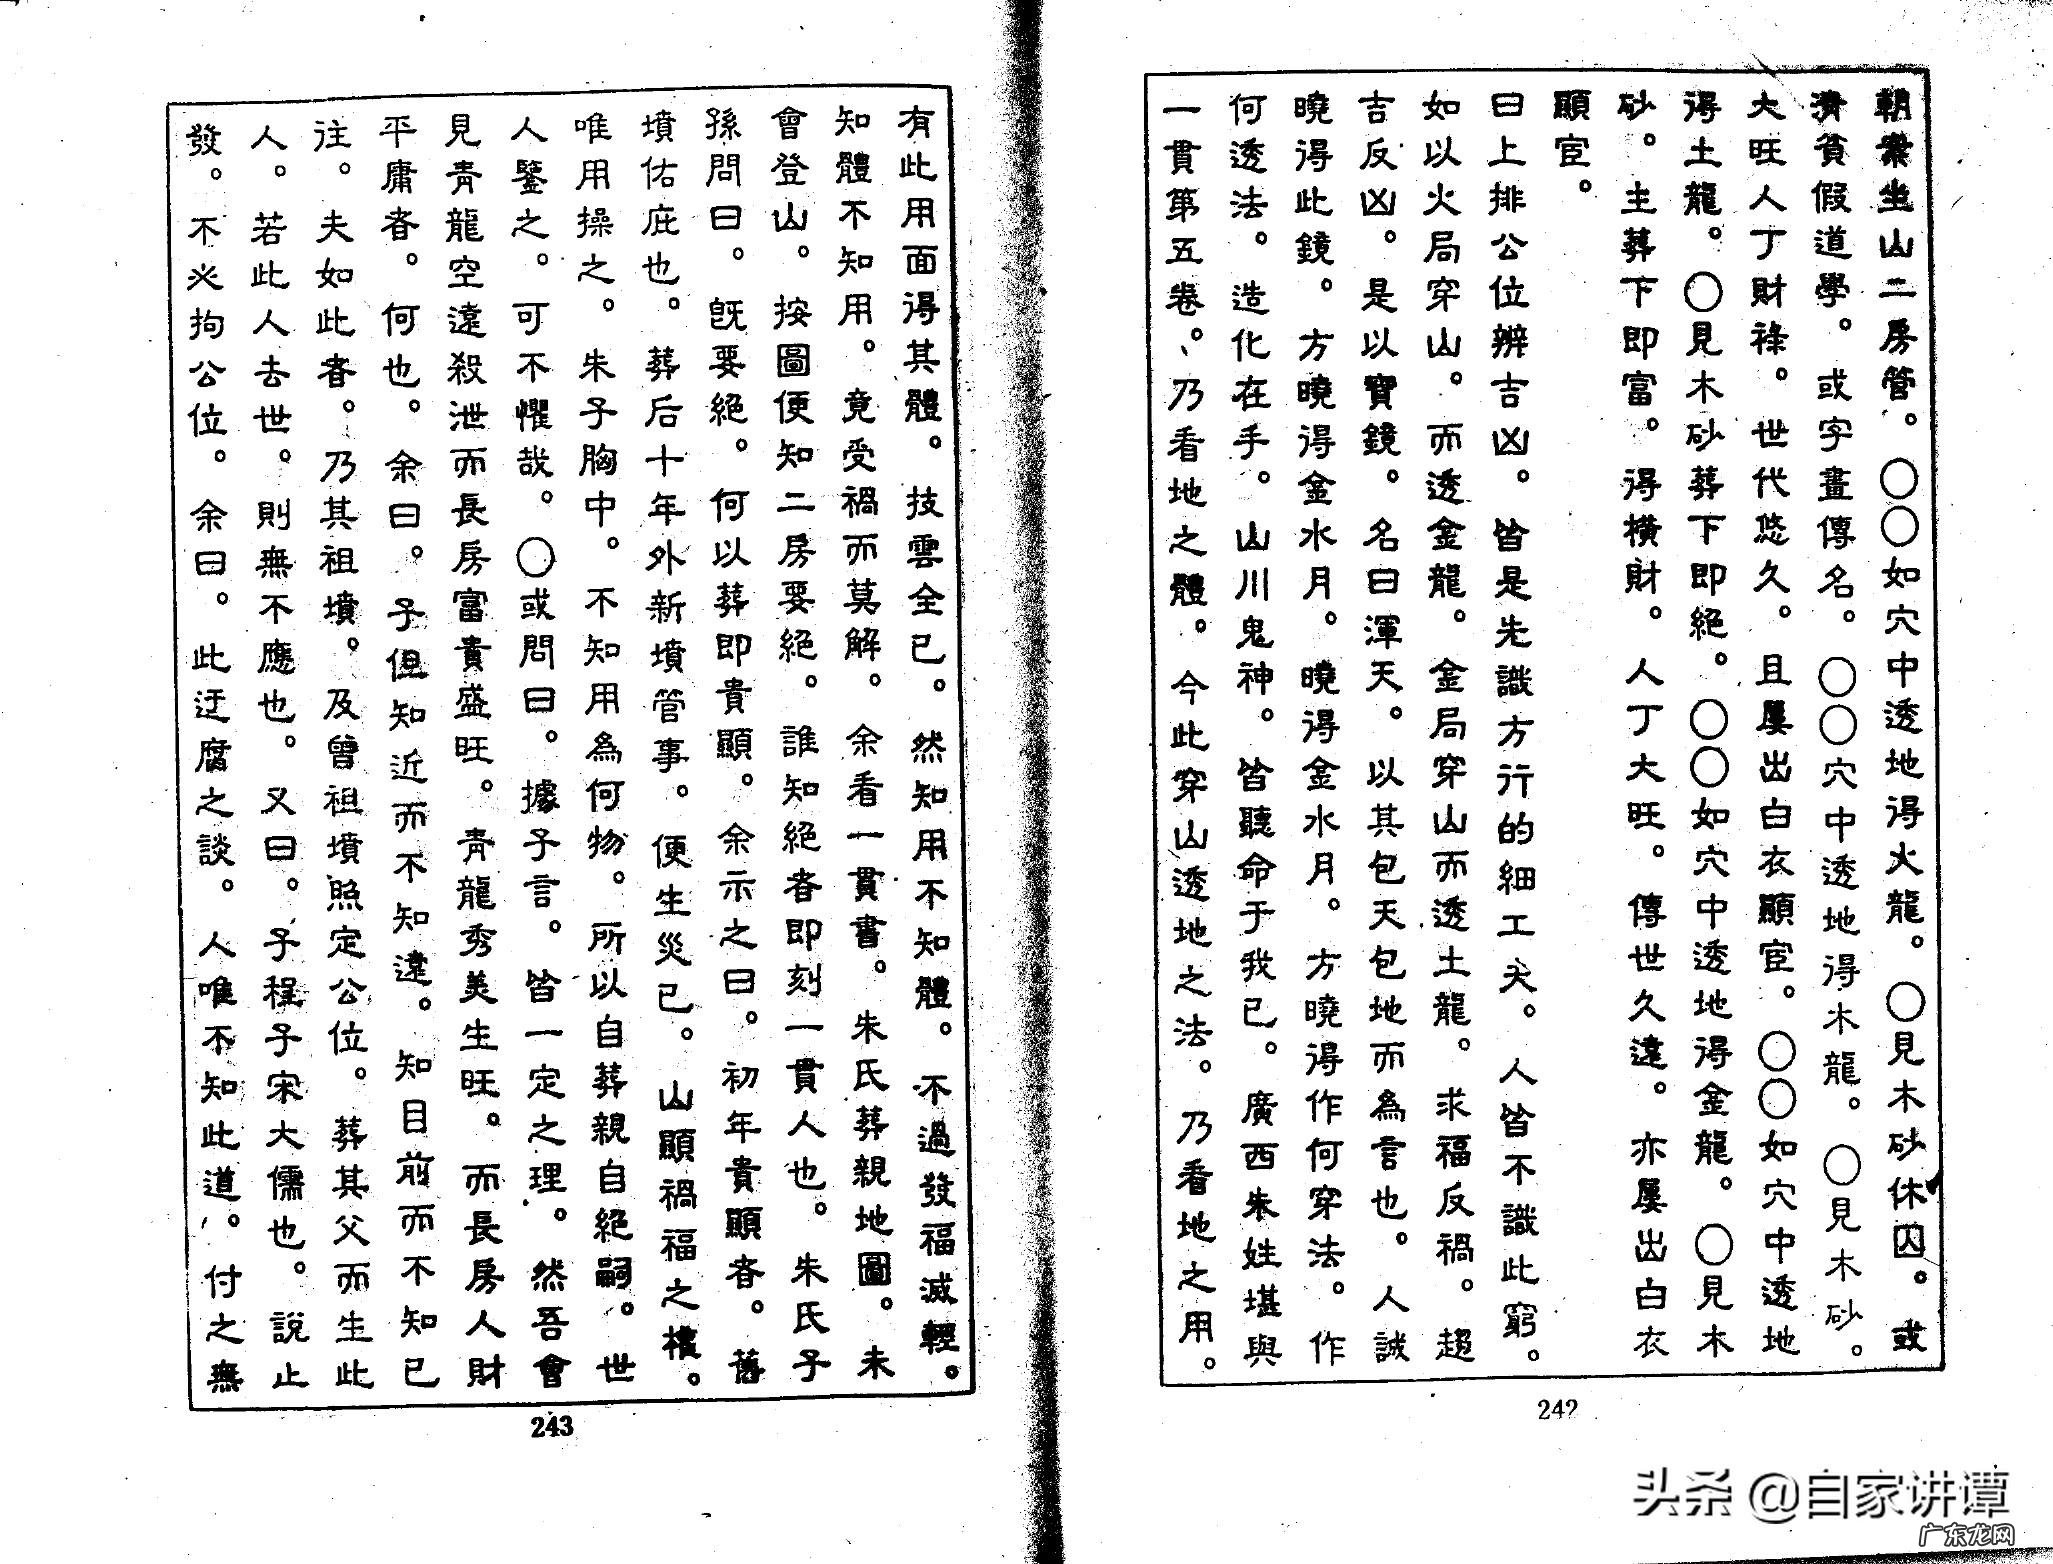 朝案坐山二房管。〇〇如穴中透地得火龍。〇見木砂休囚。或
濟貧假道學。或字畫傳名。〇〇穴中透地得木龍。〇見木砂。
大旺人丁財祿。世代悠久。且屢出白衣顯宦。〇〇如穴中透地
得土龍。〇見木砂葬下即絕。〇〇如穴中透地得金龍。〇見木
砂。主葬下即富。得橫財。人丁大旺。傳世久遠。亦屢出白衣
顯宦。
曰上排公位辨吉凶。皆是先識方行的細工夫。人皆不識此窮。
如以火局穿山。而透金龍。金局穿山而透土龍。求福反禍。趨
吉反凶。是以寶鏡。名曰渾天。以其包天包地而為言也。人誠
曉得此鏡。方曉得金水月。曉得金水月。方曉得作何穿法。作
何透法。造化在手。山川鬼神。皆聽命于我已。廣西朱姓堪與
一貫第五卷。乃看地之體。今此穿山透地之法。乃看地之用。
242
有此用面得其體。技雲全已。然知用不知體。不過發福減輕。
知體不知用。竟受禍而莫解。余看一貫書。朱氏葬親地圖。未
會登山。按圖便知二房要絕。誰知絕者即刻一貫人也。朱氏子
孫問曰。既要絕。何以葬即貴顯。余示之曰。初年貴顯者。舊
墳佑庇也。葬后十年外新墳管事。便生災已。山顯禍福之權。
唯用操之。朱子胸中。不知用為何物。所以自葬親自絕嗣。世
人鑒之。可不懼哉。〇或問曰。據子言。皆一定之理。然吾會
見青龍空遠殺泄而長房富貴盛旺。青龍秀美生旺。而長房人財
平庸者。何也。余曰。子但知近而不知遠。知目前而不知已
往。夫如此者。乃其祖墳。及曾祖墳照定公位。葬其父而生此
人。若此人去世。則無不應也。又曰。子程子宋大儒也。說止
發。不必拘公位。余曰。此迂腐之談。人唯不知此道。付之無
243
头条 @自家讲谭
广东龙网